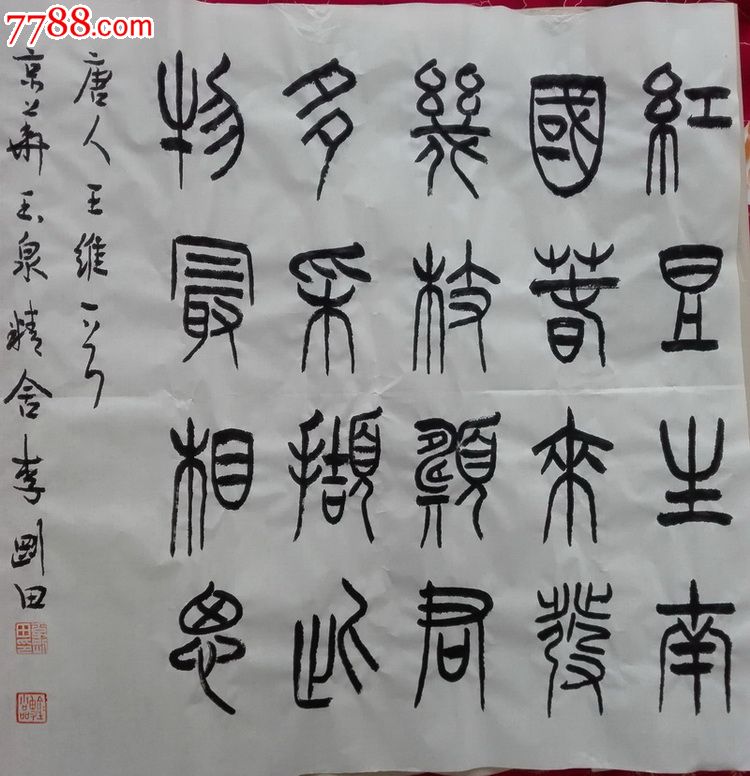 7788.com
紅豆生南
國春來發
幾枝願君
多采擷此
物最相思
唐人王維一首
京華玉泉精舍李剛田